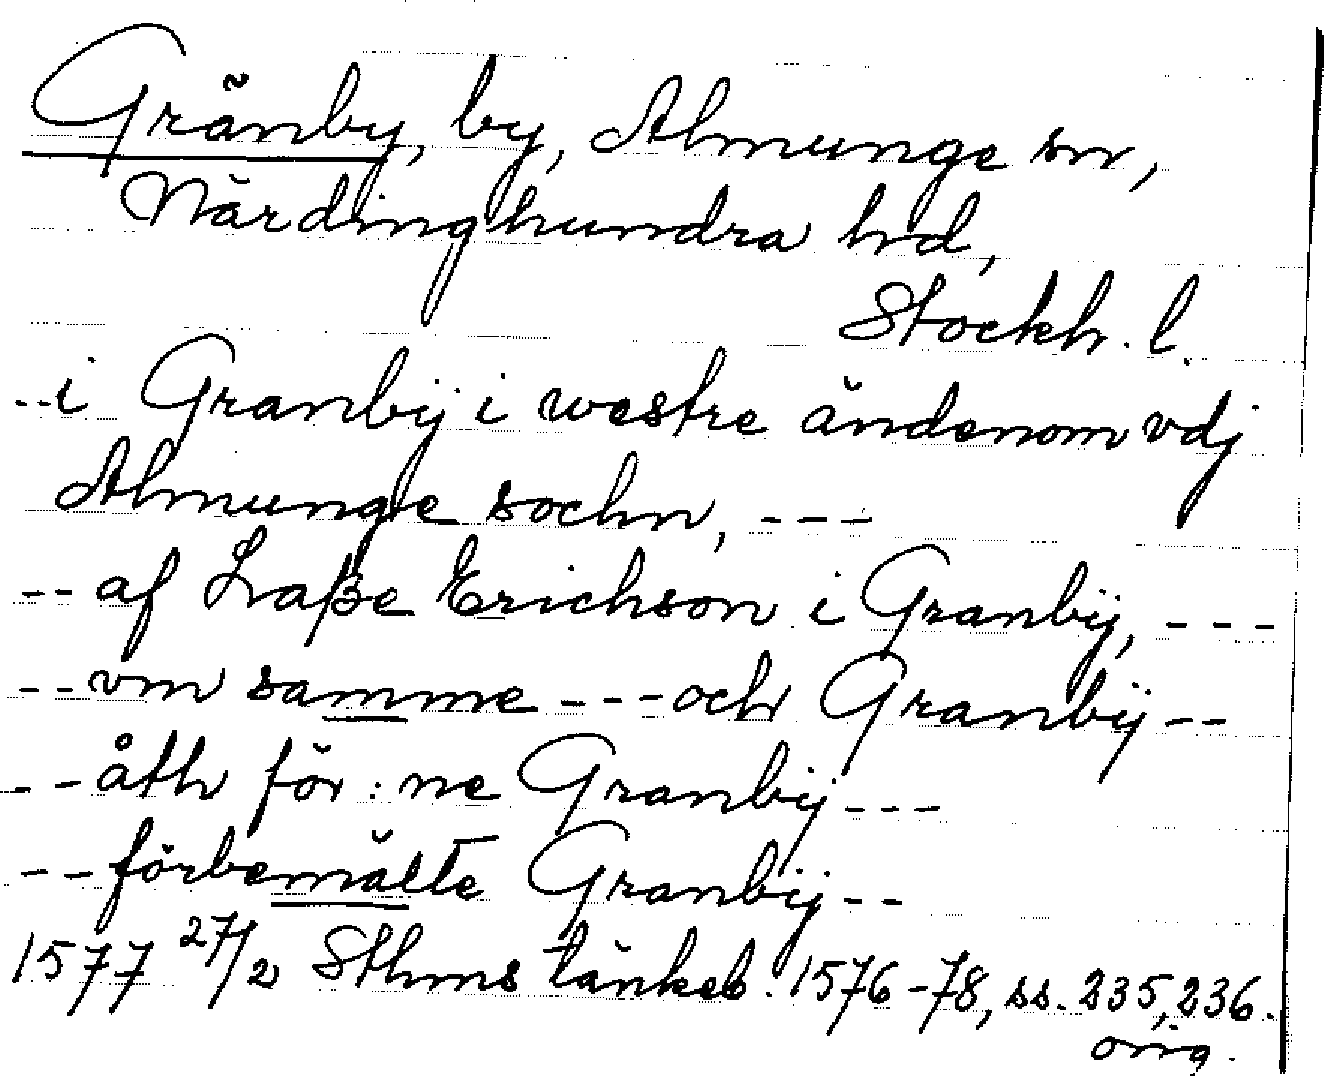 Gränby, by, Almunge sn,
Närdinghundra hd,
Stockh. l.
--i Granbÿ i westre ändenom vdj
Almunge sochn, ---
-- af Laße Erichson i Granbÿ, ---
-- vm samme --- och Granbÿ --
-- åth för:ne Granbÿ ---
-- förbemälte Granbÿ --
1577 27/2 Sthms tänkeb. 1576-78, ss. 235, 236.
orig.